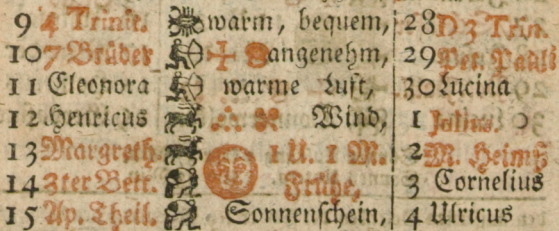 9 4 Trinit. warm, bequem, 28 D 3 Trin.
10 7 Brüder angenehm, 29 Pet. Pauli
11 Eleonora warme Luft, 30 Lucina
12 Henricus Wind, 1 Julius.
13 Margreth. 1 U. 1 M. 2 M. Heims
14 3ter Bett. Frühe, 3 Cornelius
15 Ap. Theil. Sonnenschein, 4 Ulricus